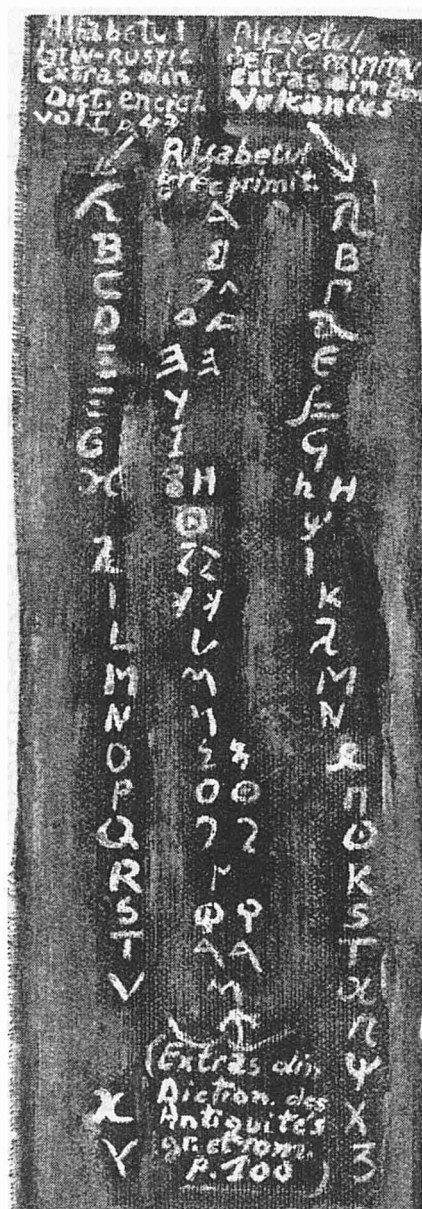 Alfabetul
latin-rustic
extras din
Dict. encicl.
vol I p. 43
λ
B
C
D
E
F
G
ϰ
λ
I
L
M
N
O
P
Q
R
S
T
V
x
Y
Alfabetul
grec primit.
A
Ʒ Ʒ
Y
I
8 H
L
M
O
Φ Φ
A A
M
(Extras din
Diction. des
Antiquités
gr. et rom.
p. 100)
Alfabetul
getic primitiv
extras din Bon.
Vulcanius
λ
B
Γ
E
G
h H
ψ
I
K
λ
M
N
Π
K
S
T
ϰ
Π
ψ
X
Ʒ